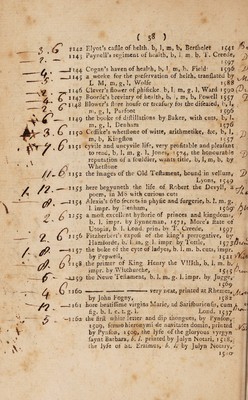 ( 58 )
3. 6 1142 Elyot's castle of helth, b, l, m, b, Berthelet 1541
1143 Paynell's regiment of health, b, l, m, b, T. Creede, 1597
1144 Cogan's haven of health, b, l, m, b, Field 1596
1145 a worke for the preservation of helth, translated by L. M, m, g, l, Wolfe 1588
1146 Clever's flower of phisicke, b, l, m, g, l, Ward 1590
1147 Boorde's breviary of health, b, l, m, b, Powell 1557
1148 Blower's store house or treasury for the diseased, b, l, m, g, l, Purfoot 1596
6 1149 the booke of distillations by Baker, with cuts, b, l, m, g, l, Denham 1576
3. 1150 Coslike's whetstone of witte, arithmetike, &c, b, l, m, b, Kingston 1557
7. 6 1151 cyvile and uncyvile life, very pleasaunt and pleasant to read, b, l, m, g, l, Jones, 1579, the honourable reputation of a souldier, wants title, b, l, m, b, by Whetstone
11. 6 1152 the Images of the Old Testament, bound in vellum, Lyons, 1549
1. 12. 1153 here begynneth the life of Robert the Devyll, a poem, in MS with curious cuts
8. 1154 Alexis's 680 secrets in physic and surgerie, b, l, m, g, l impr. by Denham, 1569
2. 6 1155 a most excellent hystorie of princes and kingdoms, b, l. impr. by Bynneman, 1571, More's state of Utopia, b, l. Lond. prin. by T. Creede, 1597
2. 6 1156 Fitzherbert's expos. of the king's prerogative, by Hamfords, b, l, m, g, l impr. by Tottle, 1577
1. 1157 the boke of the cyte of ladyes, b, l. m. b. cuts, impr. by Pepwell, 1521
8. 1158 the primer of King Henry the VIIIth, b, l, m. b. impr. by Whitchurch, 1545
5. 1159 the Newe Testament, b, l. m, g, l. impr. by Jugge,
4. 6 1160 very neat, printed at Rhemes, by John Fogny, 1582
12. 1161 hore beatissime virginis Marie, ad Sarisburiensis, cum fig. b. l. r. t. g. l. Lond. 1537
5. 1162 the first whyte letter and ship of fooles, by Pynson, 1509, sermo hieronymi de navitates domini, printed by Pynson, 1500, the lyfe of the gloryous vyrgyn saynt Barbara, &c. printed by Julyn Notary, the lyfe of st. Erasmus, &c. by Julyn Notary,